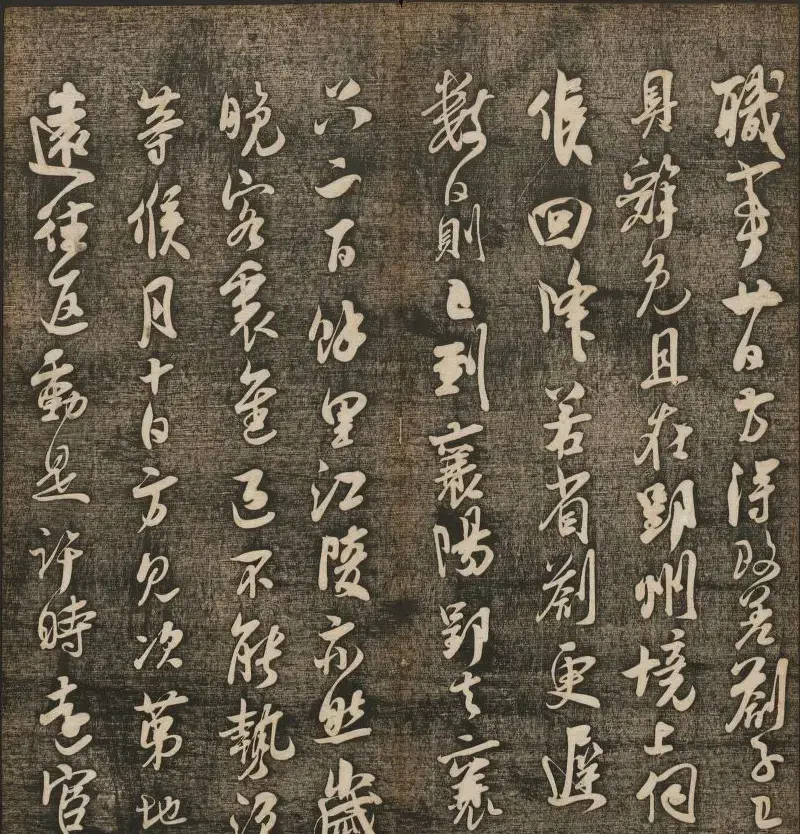 職事廿日方得改差劄子已
具辭免且在郢州境上伺
候回降若省劄更遲
數日則已到襄陽郢去襄
只二百餘里江陵亦然歲
晚客裏不能
等候月十日方見次第地
遠往返動是許時官